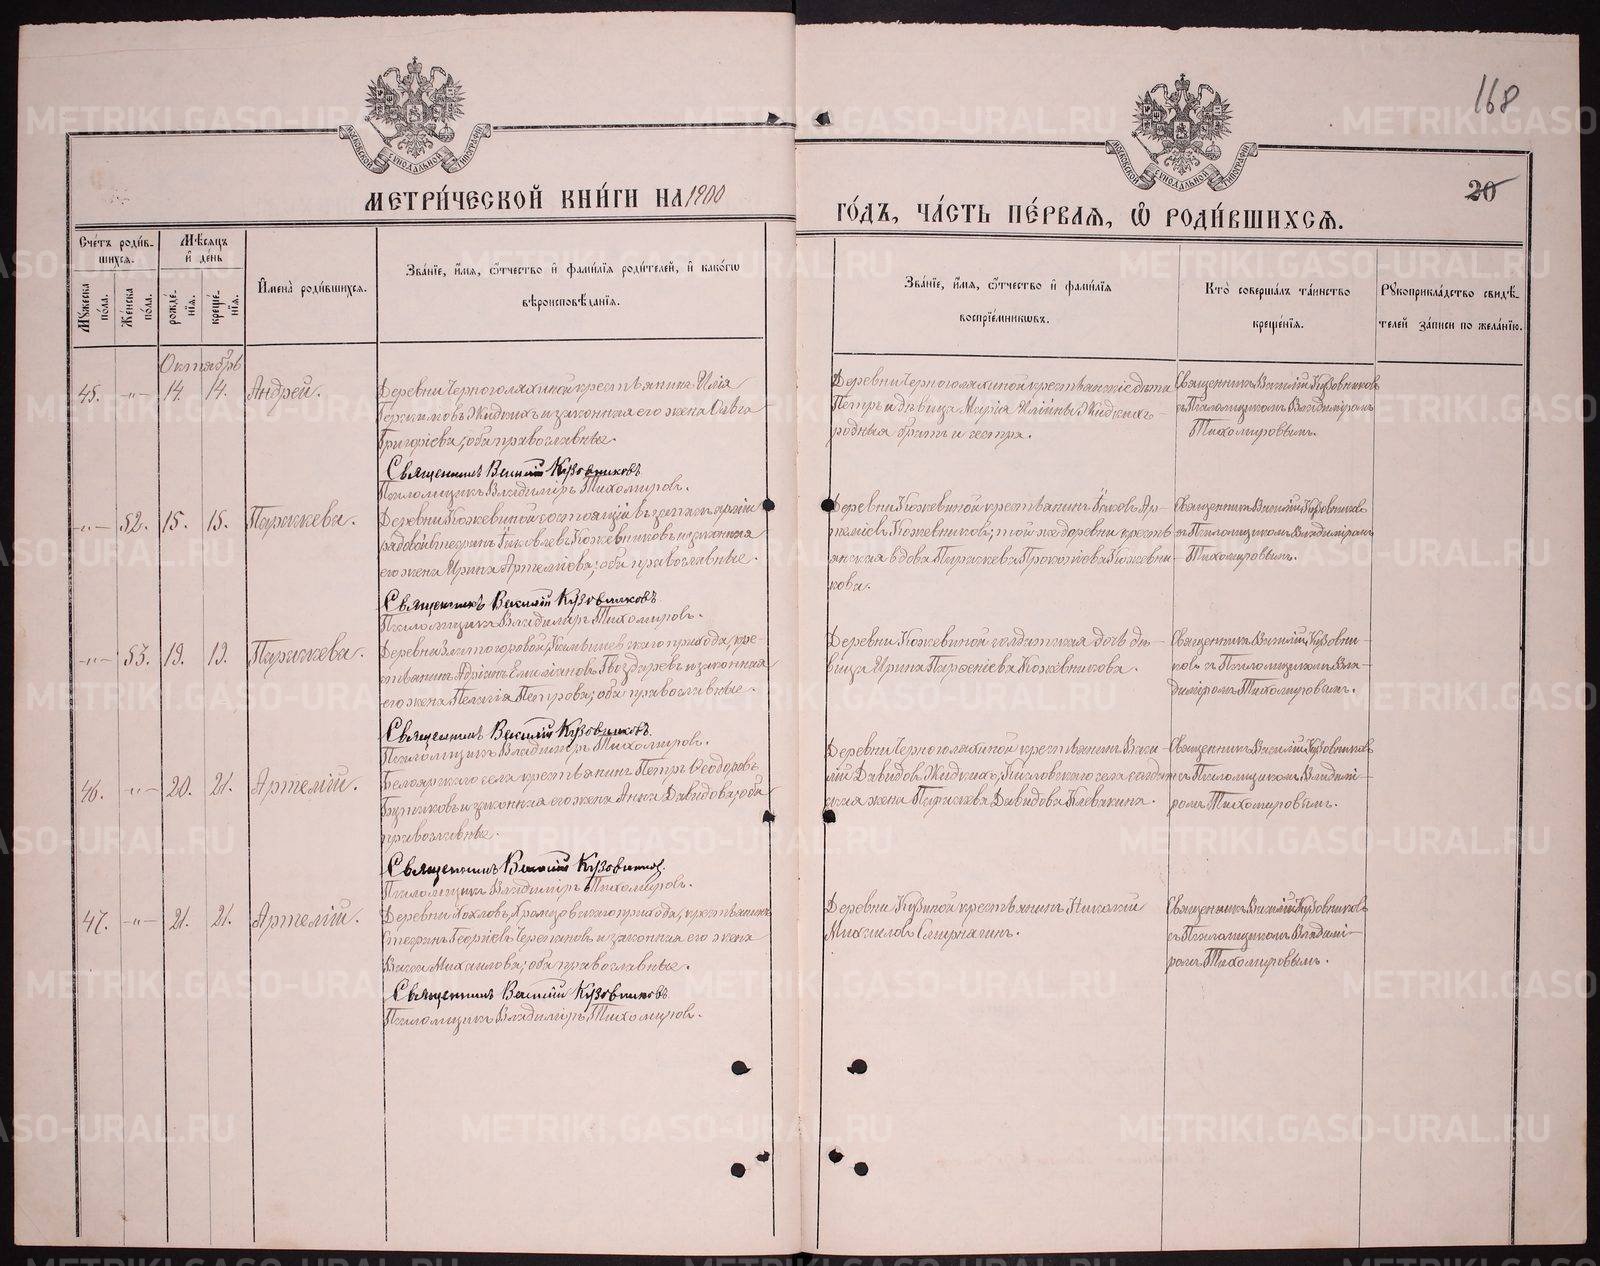 168
20
МЕТРИ́ЧЕСКОЙ КНИ́ГИ НА 1900
ГО́ДЪ, ЧА́СТЬ ПЕ́РВАЯ, Ѿ РОДИ́ВШИХСЯ.
Сче́тъ роди́в-
шихся.
Му́жеска по́ла.
Же́нска по́ла.
Мѣ́сяцъ и де́нь
рожде́-
нїя.
креще́-
нїя.
И҆мена̀ роди́вшихся.
Зва́нїе, и҆́мя, ѻ҆́тчество и҆ фами́лїя роди́телей, и҆ како́гѡ
вѣроисповѣ́данїя.
Зва́нїе, и҆́мя, ѻ҆́тчество и҆ фами́лїя
воспрїе́мникѡвъ.
Кто̀ соверша́лъ та́инство
креще́нїя.
Рꙋкоприкла́дство свидѣ́-
телей за́писи по жела́нїю.
Октябрь
45. -"- 14. 14. Андрей.
Деревни Черноголяхиной крестьянинъ Илія
Герасимовъ Жидкихъ и законная его жена Ольга
Григоріева, оба православные.
Священникъ Василій Кузовниковъ
Псаломщикъ Владиміръ Тихомировъ.
Деревни Черноголяхиной крестьянскіе дѣти
Петръ и дѣвица Марія Иліины Жидкихъ
родные братъ и сестра.
Священникъ Василій Кузовниковъ
съ Псаломщикомъ Владиміромъ
Тихомировымъ.
-"- 52. 15. 15. Параскева.
Деревни Кожевиной состоящій въ запасѣ арміи
рядовой Стефанъ Іаковлевъ Кожевниковъ и законная
его жена Ирина Артеміева, оба православные.
Священникъ Василій Кузовниковъ
Псаломщикъ Владиміръ Тихомировъ.
Деревни Кожевиной крестьянинъ Іаковъ Ар-
теміевъ Кожевниковъ; той же деревни кресть-
янская вдова Параскева Прокопіева Кожевни-
кова.
Священникъ Василій Кузовниковъ
съ Псаломщикомъ Владиміромъ
Тихомировымъ.
-"- 53. 19. 19. Параскева.
Деревни Златогоровой, прихода, кре-
стьянинъ Адріанъ Емиліановъ Гвоздаревъ и законная
его жена Пелагія Петрова, оба православные.
Священникъ Василій Кузовниковъ
Псаломщикъ Владиміръ Тихомировъ.
Деревни Кожевиной солдатская дочь дѣ-
вица Ирина Парѳеніева Кожевникова.
Священникъ Василій Кузовни-
ковъ съ Псаломщикомъ Вла-
диміромъ Тихомировымъ.
46. -"- 20. 21. Артемій.
Белоярскаго села крестьянинъ Петръ Ѳеодоровъ
и законная его жена Анна Давидова, оба
православные.
Священникъ Василій Кузовниковъ
Псаломщикъ Владиміръ Тихомировъ.
Деревни Черноголяхиной крестьянинъ Васи-
лій Давидовъ Жидкихъ, Кисловскаго села солдат-
ская жена Параскева Давидова Клевакина.
Священникъ Василій Кузовниковъ
съ Псаломщикомъ Владимі-
ромъ Тихомировымъ.
47. -"- 21. 21. Артемій.
Деревни прихода, крестьянинъ
Стефанъ Георгіевъ Черепановъ и законная его жена
Васса Михаилова, оба православные.
Священникъ Василій Кузовниковъ
Псаломщикъ Владиміръ Тихомировъ.
Деревни крестьянинъ Николай
Михаиловъ Смирнягинъ.
Священникъ Василій Кузовниковъ
съ Псаломщикомъ Владимі-
ромъ Тихомировымъ.
METRIKI.GASO-URAL.RU